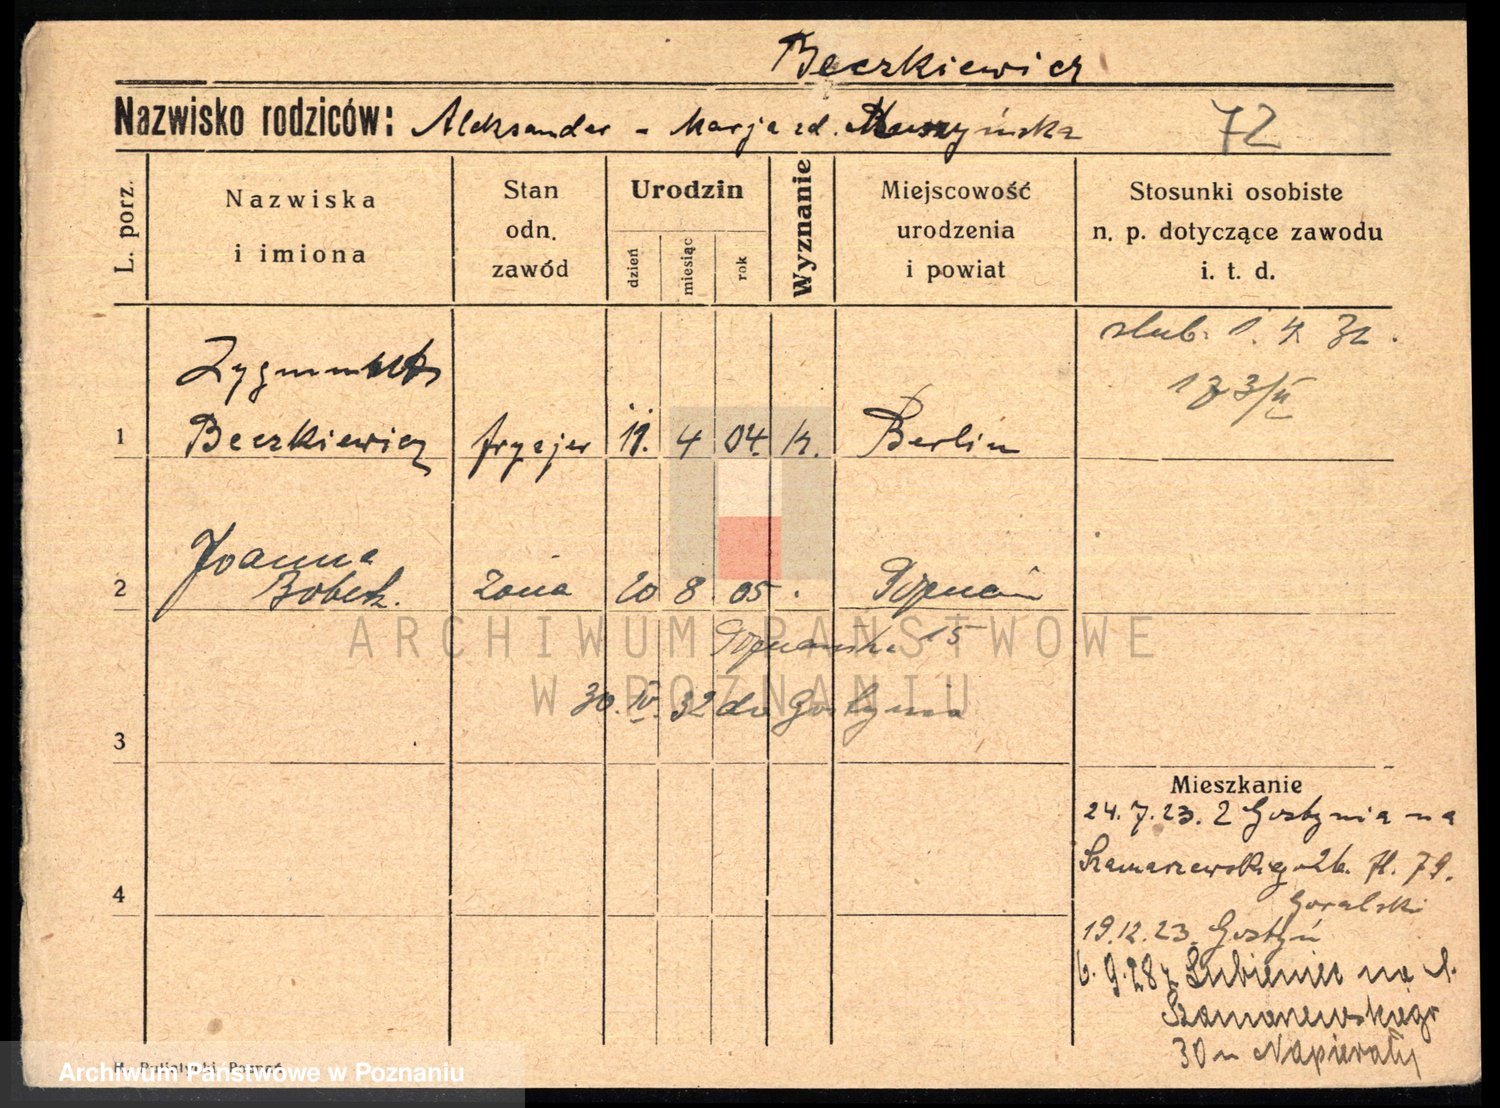 Beczkiewicz
Nazwisko rodziców: Aleksander - Marja zd. Muszyńska 72
L. porz.
Nazwiska
i imiona
Stan
odn.
zawód
Urodzin
dzień
miesiąc
rok
Wyznanie
Miejscowość
urodzenia
i powiat
Stosunki osobiste
n. p. dotyczące zawodu
i. t. d.
1
Zygmunt
Beczkiewicz
fryzjer
11. 4 04. k.
Berlin
slub. 1. 4. 32.
173/II
2
Joanna
Bobek.
żona
20 8. 05.
Poznań
Poznańska 15
30. IV. 32 do Gostynia
3
4
Mieszkanie
24. 7. 23. z Gostynia na
Szamarzewskiego 26. 79.
Goralski
19.12.23. Gostyń
6. 9. 28 z Lubieniec na
Szamarzewskiego
30 u Napierały
ARCHIWUM PAŃSTWOWE
W POZNANIU
Archiwum Państwowe w Poznaniu